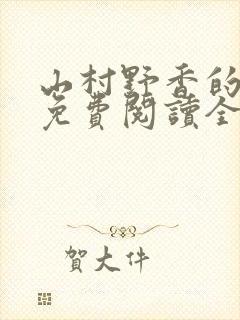 山村野香的
免費閱讀全
賀大件